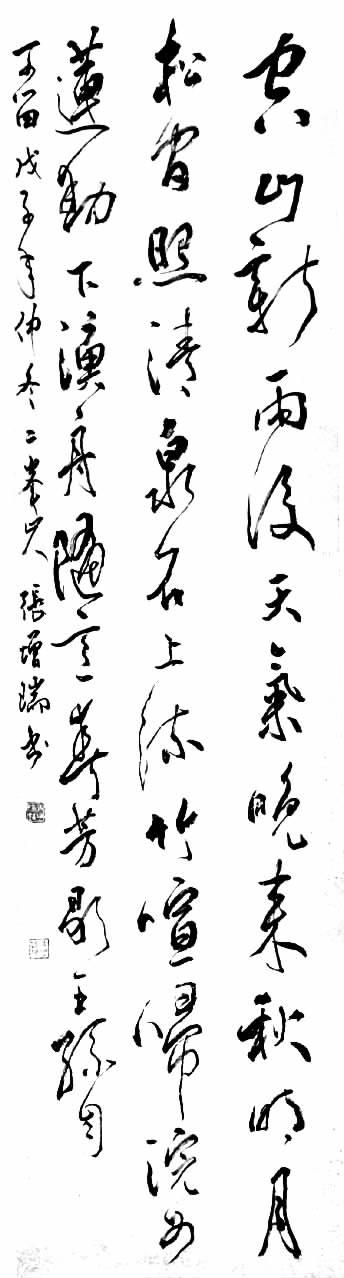 空山新雨後天氣晚来秋明月
松間照清泉石上流竹喧歸浣女
蓮動下漁舟隨意春芳歇王孫自
可留戊子年仲冬二張增瑞书